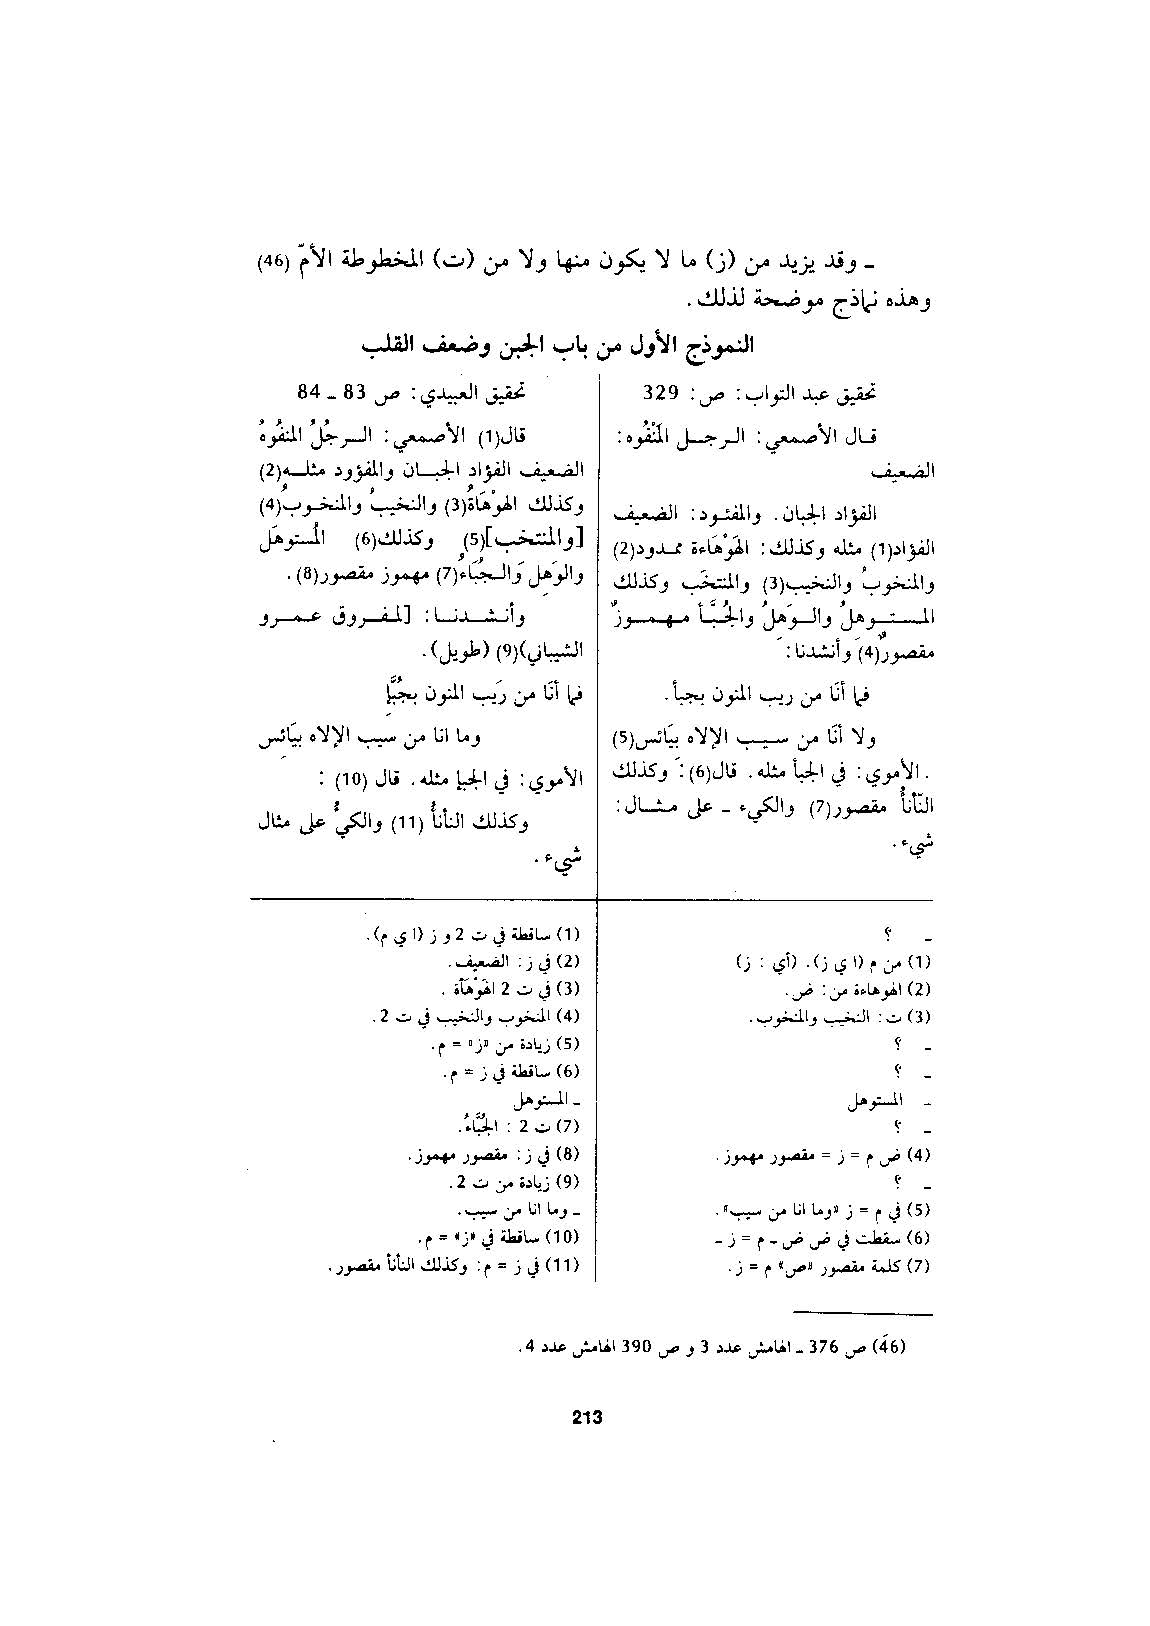 ـ وقد يزيد من (ز) ما لا يكون منها ولا من (ت) المخطوطة الأمّ (46)
وهذه نماذج موضحة لذلك .
النموذج الأول من باب الجبن وضعف القلب
تحقيق عبد التواب : ص : 329
قـال الأصمعي : الـرجـل المَنْفُوه :
الضعيف
الفؤاد الجبان . والمفئـود : الضعيف
الفؤاد(1) مثله وكذلك : الهَوْهَاءة ممـدود(2)
والمنخوبُ والنخيب(3) والمنتخَب وكذلك
المستوهلُ والوَهِلُ والجُبَّأ مهموزٌ
مقصورٌ(4) وأنشدنا :
فما أنَا من ريب المنون بجبأ .
ولا أنَا من سيب الإلاه بيَائس(5)
. الأموي : في الجبأ مثله . قال(6) : وكذلك
النّأنأُ مقصور(7) والكيء ـ على مثـال :
شيء .
تحقيق العبيدي : ص 83 ـ 84
قال(1) الأصمعي : الـرجُلُ المنفُوهُ
الضعيف الفؤاد الجبـان والمفؤود مثلـه(2)
وكذلك الهوْهَاةُ(3) والنخيبُ والمنخـوبُ(4)
[والمنتخب](5) وكذلك(6) المُستوهَل
والوَهِل وَالـجُبَّاءُ(7) مهموز مقصور(8) .
وأنـشـدنـا : [لمفروق عمرو
الشيباني)(9) (طويل) .
فما أنَا من رَيب المنون بجُبَّإ
وما انا من سيب الإلاه بيَائس
الأموي : في الجبإ مثله . قال (10) :
وكذلك النأنأُ (11) والكيُ على مثال
شيء .
ـ ؟
(1) من م (ا ي ز) . (أي : ز)
(2) الهوهاءة من : ض .
(3) ت : النخيب والمنخوب .
ـ ؟
ـ ؟
ـ المستوهل
ـ ؟
(4) ض م = ز = مقصور مهموز .
ـ ؟
(5) في م = ز «وما انا من سيب» .
(6) سقطت في ض ض ـ م = ز ـ
(7) كلمة مقصور «ص» م = ز .
(1) ساقطة في ت 2 و ز (ا ي م) .
(2) في ز : الضعيف .
(3) في ت 2 الهَوْهَآة .
(4) المنخوب والنخيب في ت 2 .
(5) زيادة من «ز» = م .
(6) ساقطة في ز = م .
ـ المستوهل
(7) ت 2 : الجُبَّاءُ .
(8) في ز : مقصور مهموز .
(9) زيادة من ت 2 .
ـ وما انا من سيب .
(10) ساقطة في «ز» = م .
(11) في ز = م : وكذلك النأنأ مقصور .
(46) ص 376 ـ الهامش عدد 3 و ص 390 الهامش عدد 4 .
213